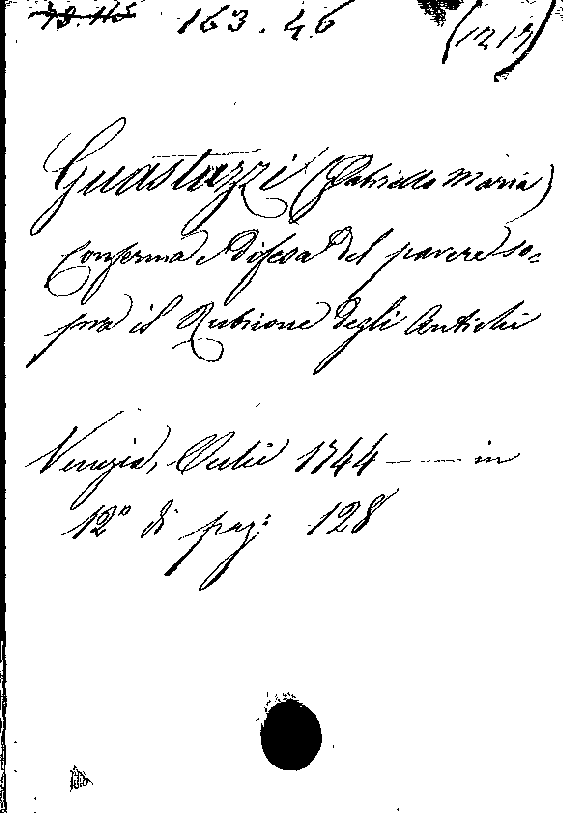 163.46
Guastuzzi (Gabriello Maria)
Conferma e difesa del parere so=
pra il Rubicone degli Antichi
Venezia, 1744 —— in
12° di pag: 128